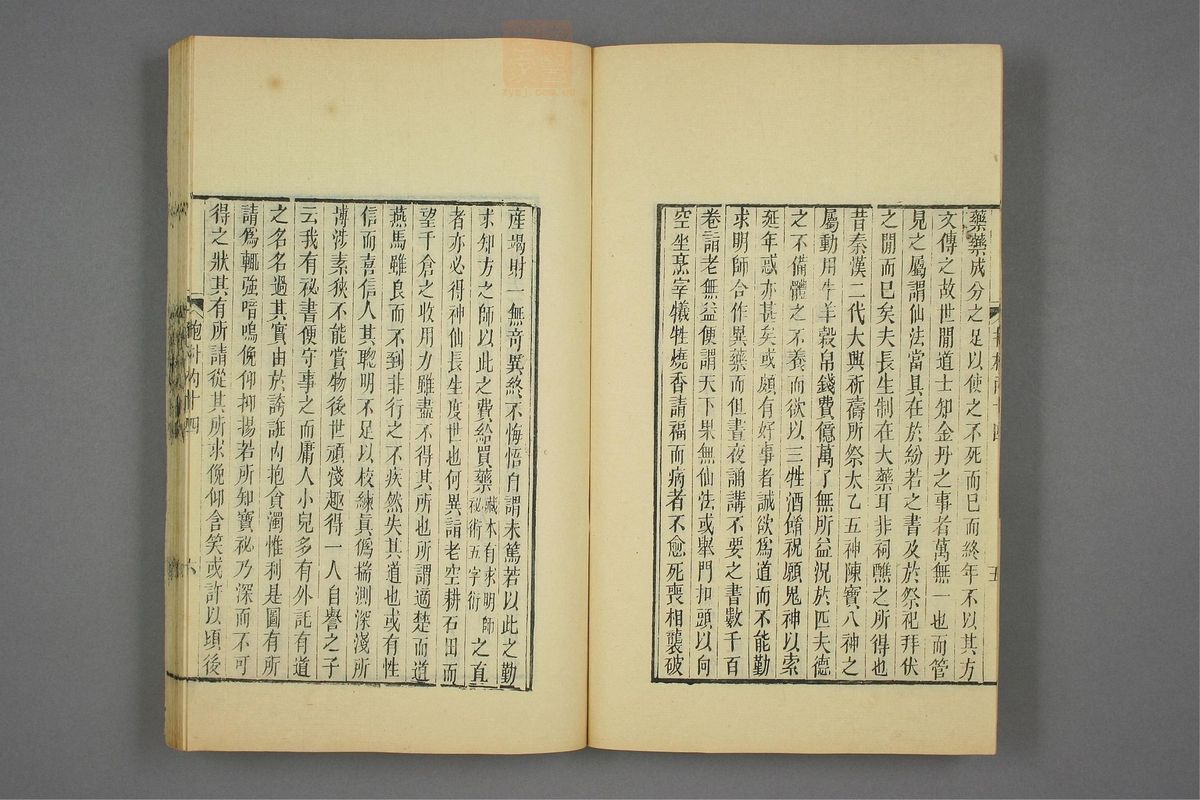 藥藥成分之足以使之不死而巳而終年不以其方
文傳之故世閒道士知金丹之事者萬無一也而管
見之屬謂仙法當具在於紛若之書及於祭祀拜伏
之閒而巳矣夫長生制在大藥耳非祠醮之所得也
昔秦漢二代大興祈禱所祭太乙五神陳寶八神之
屬動用牛羊穀帛錢費億萬了無所益況於匹夫德
之不備體之不養而欲以三牲酒餚祝願鬼神以索
延年惑亦甚矣或頗有好事者誠欲爲道而不能勤
求明師合作異藥而但晝夜誦講不要之書數千百
卷詣老無益便謂天下果無仙法或舉門扣頭以向
空坐烹宰犧牲燒香請福而病者不愈死喪相襲破
五
產竭財一無奇異終不悔悟自謂未篤若以此之勤
求知方之師以此之費給買藥藏本有求明師祕術五字衍之直
者亦必得神仙長生度世也何異詣老空耕石田而
望千倉之收用力雖盡不得其所也所謂適楚而道
燕馬雖良而不到非行之不疾然失其道也或有性
信而喜信人其聰明不足以校練眞僞揣測深淺所
博涉素狹不能賞物後世頑淺趣得一人自譽之子
云我有祕書便守事之而庸人小兒多有外託有道
之名名過其實由於誇誑內抱貪濁惟利是圖有所
請爲輒強喑嗚俛仰抑揚若所知寶祕乃深而不可
得之狀其有所請從其所求俛仰含笑或許以頃後
抱朴內十四
六